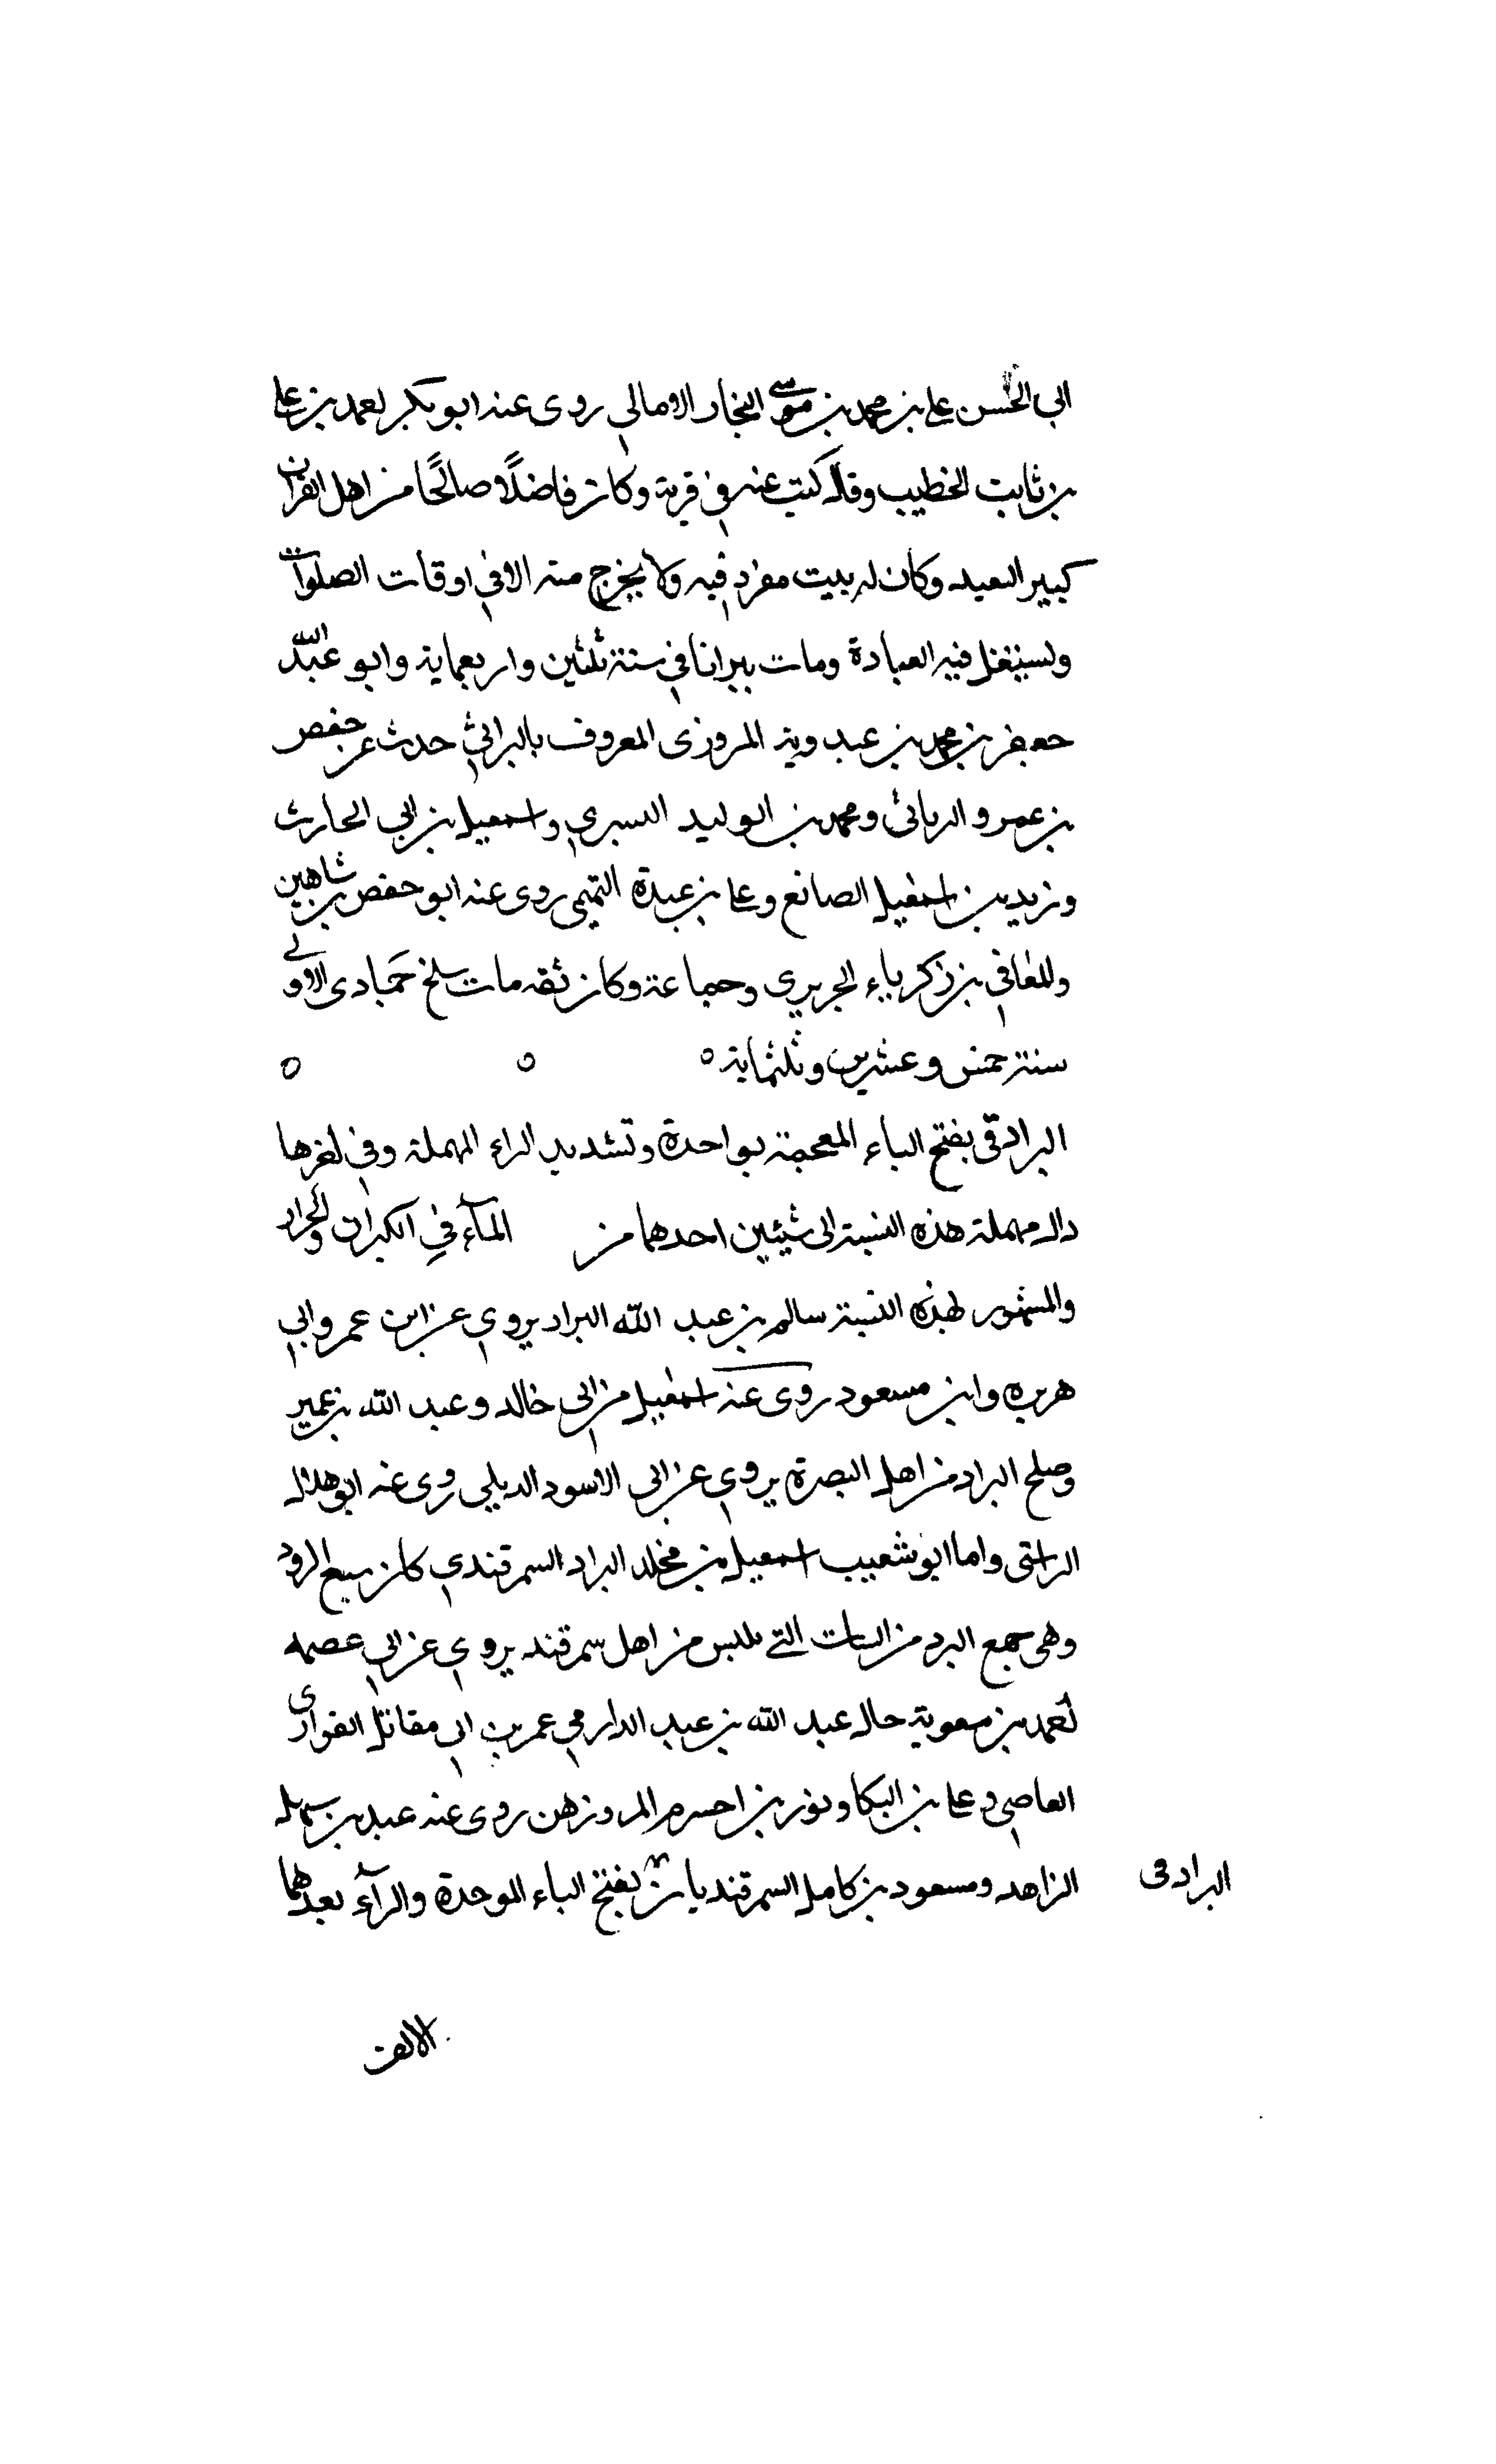 ابى الحسن على بن محمد بن موسى النجار الامالى روى عنه ابو بكر احمد بن على
بن ثابت الخطيب وقال كتبت عنه فى قرية وكان فاضلًا صالحًا من اهل القران
كبير التعبد وكان له بيت مفرد فيه ولا يخرج منه الا فى اوقات الصلوات
ولسيتغل فيه العبادة ومات ببراثا فى سنة ثلثين واربعماية وابو عبد الله
جعفر بن محمد بن عبدوية المروزى المعروف بالبراثى حدث عن حفص
بن عمرو الربائى ومحمد بن الوليد البسرى واسمعيل بن ابى الحارث
وزيد بن اسمعيل الصانع وعلى بن عبدة التميمى روى عنه ابو حفص بن شاهين
والمعافى بن زكرياء الجريرى وجماعة وكان ثقه مات سلخ جمادى الاولى
سنة خمس وعشرين وثلثماية ٥ ٥ ٥
البرادقى بفتح الباء المعجمة بواحدة وتشديد الراء المهملة وفى اخرها
دال مهملة هذه النسبة الى شيئين احدهما من المآء فى الكيزان والجرار
والمشهور بهذه النسبة سالم بن عبد الله البراد يروى عن ابن عمر وابى
هريره وابن مسعود روى عنه اسمعيل من ابى خالد وعبد الله بن عمير
وصلح البراد من اهل البصرة يروى عن ابى الاسود الديلى روى عنه ابو هلال
الراسى واما ابو شعيب اسمعيل بن مخلد البراد السمرقندى كان يبيع البرود
وهى جمع البرد من الثياب التى تلبس من اهل سمرقند يروى عن ابى عصمه
احمد بن معوية خال عبد الله بن عبد الدارمى عمر بن ابى مقاتل الفوارى
العاصى وعلى بن البكا ونور بن احسرم المروزهن روى عنه عبد بن سهل
الزاهد ومسعود بن كامل السمرقنديان بفتح الباء الموحدة والرآء بعدهما
البرادقى
الالف